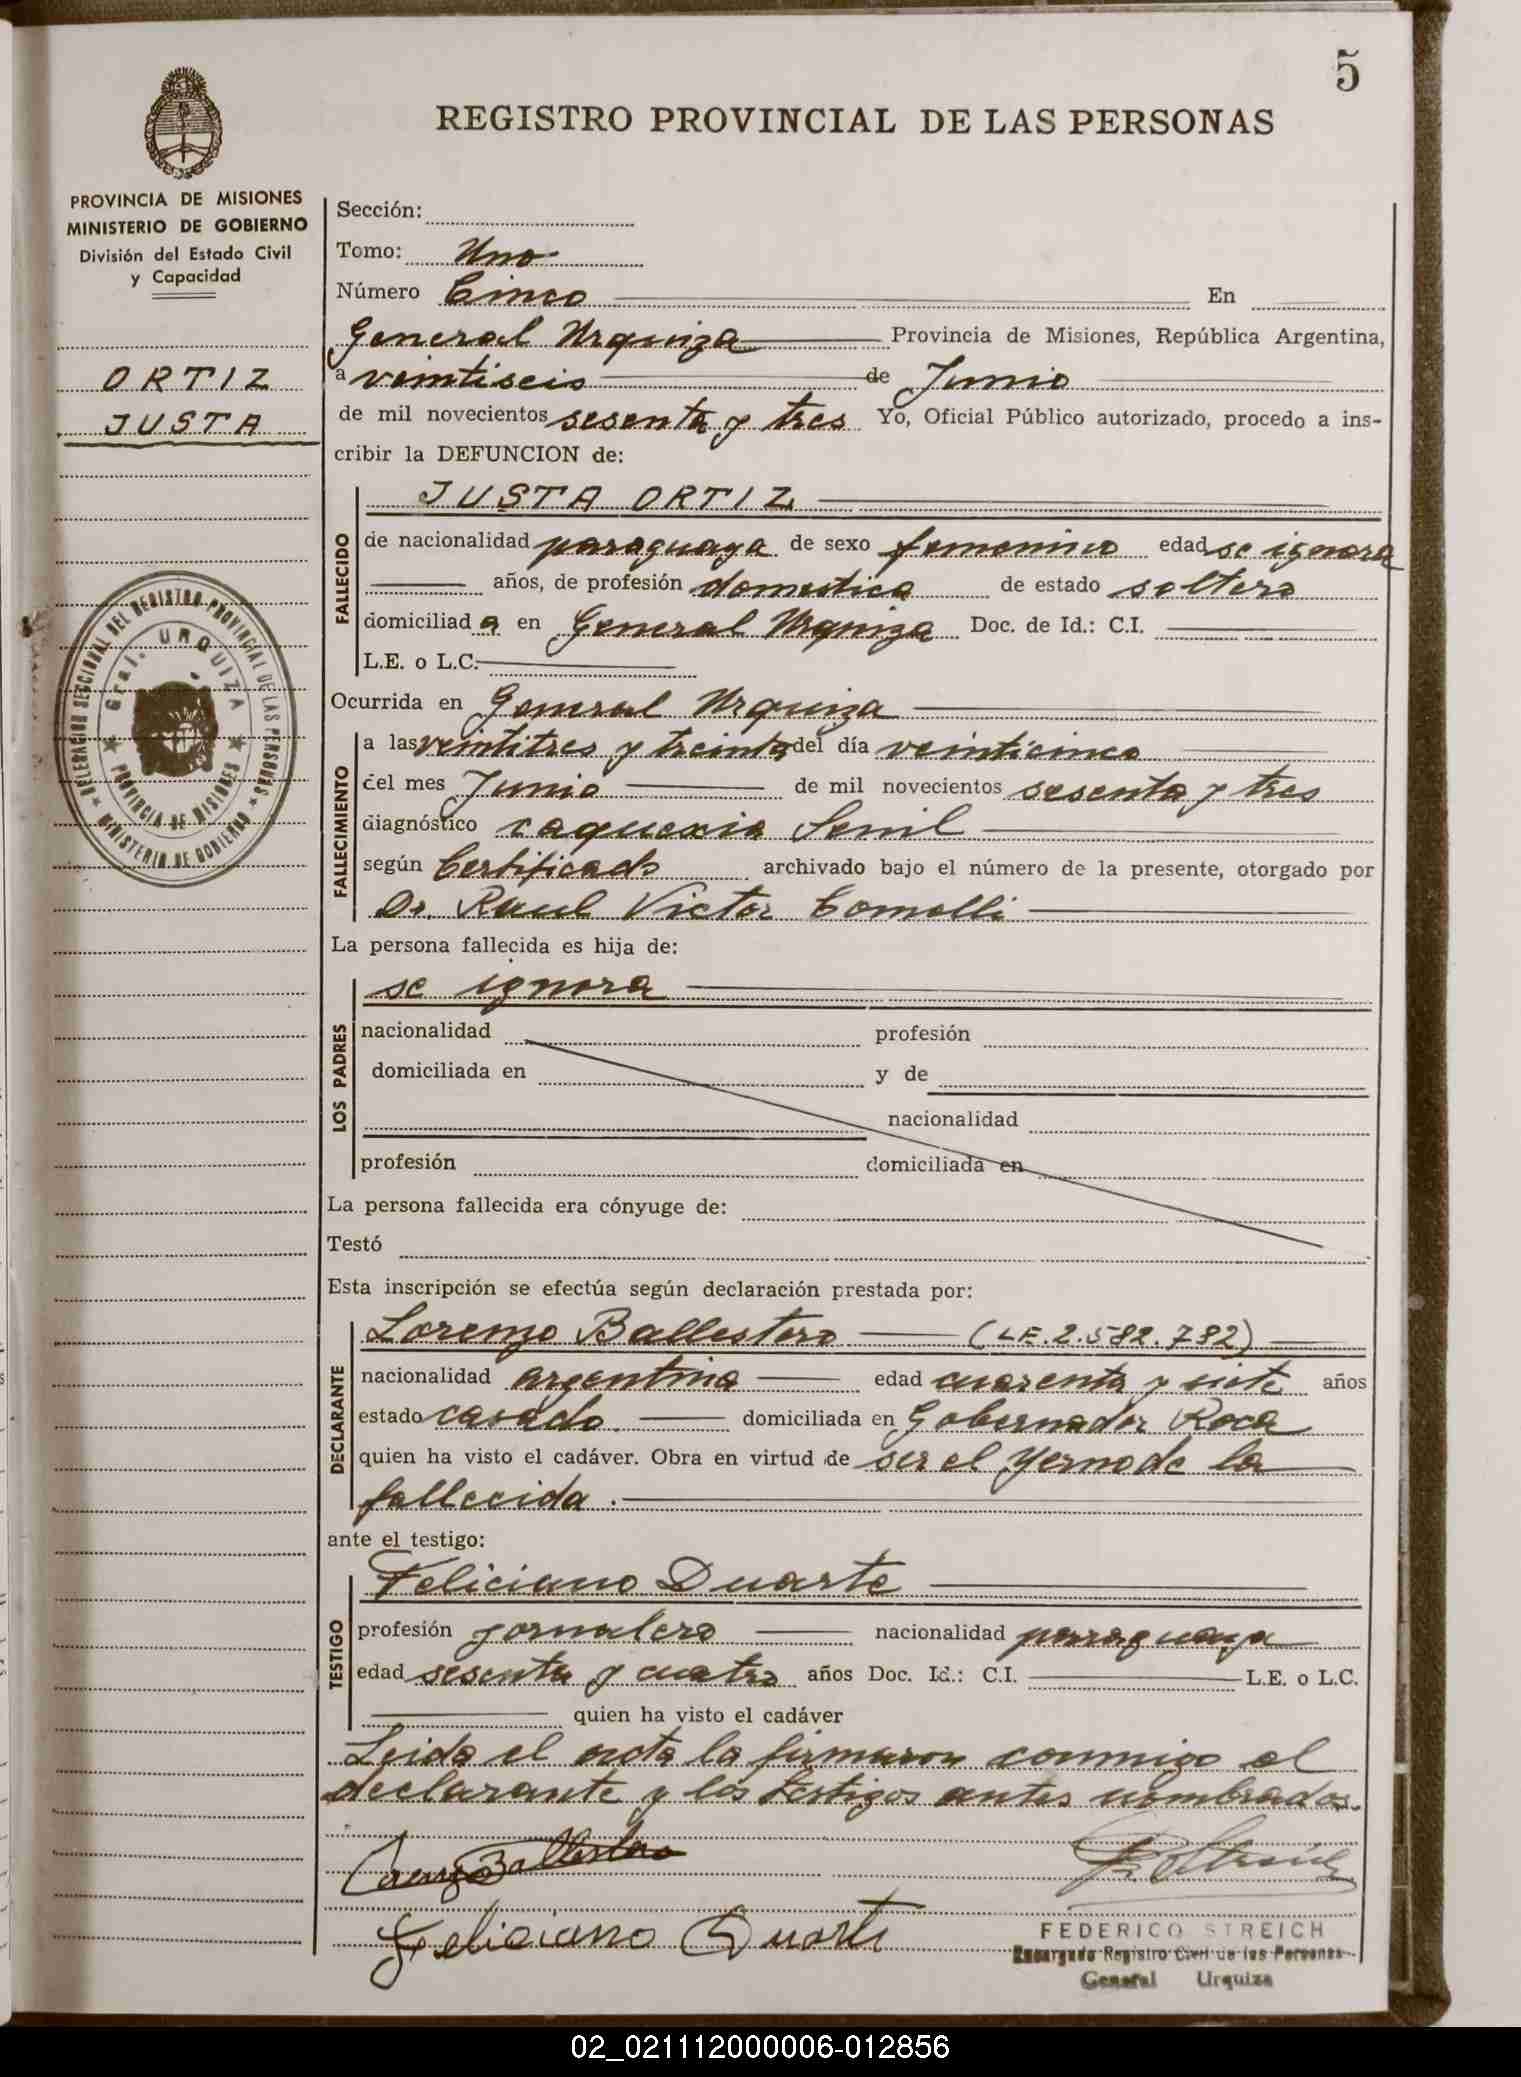 5
REGISTRO PROVINCIAL DE LAS PERSONAS
PROVINCIA DE MISIONES
MINISTERIO DE GOBIERNO
División del Estado Civil
y Capacidad
ORTIZ
JUSTA
DELEGACION SECCIONAL DEL REGISTRO PROVINCIAL DE LAS PERSONAS
Gral. URQUIZA
PROVINCIA DE MISIONES
MINISTERIO DE GOBIERNO
Sección:
Tomo: Uno
Número Cinco En
General Urquiza Provincia de Misiones, República Argentina,
a veintiseis de Junio
de mil novecientos sesenta y tres Yo, Oficial Público autorizado, procedo a ins-
cribir la DEFUNCION de:
FALLECIDO
JUSTA ORTIZ
de nacionalidad paraguaya de sexo femenino edad se ignora
años, de profesión domestica de estado soltera
domiciliad a en General Urquiza Doc. de Id.: C.I.
L.E. o L.C.
Ocurrida en General Urquiza
FALLECIMIENTO
a las veintitres y treinta del día veinticinco
del mes Junio de mil novecientos sesenta y tres
diagnóstico caquexia Senil
según Certificado archivado bajo el número de la presente, otorgado por
Dr. Raul Victor Comolli
La persona fallecida es hija de:
LOS PADRES
se ignora
nacionalidad profesión
domiciliada en y de
nacionalidad
profesión domiciliada en
La persona fallecida era cónyuge de:
Testó
Esta inscripción se efectúa según declaración prestada por:
DECLARANTE
Lorenzo Ballestero (LE.2.582.782)
nacionalidad argentina edad cuarenta y siete años
estado casado domiciliada en Gobernador Roca
quien ha visto el cadáver. Obra en virtud de ser el yerno de la
fallecida.
ante el testigo:
TESTIGO
Feliciano Duarte
profesión jornalero nacionalidad paraguaya
edad sesenta y cuatro años Doc. Id.: C.I. L.E. o L.C.
quien ha visto el cadáver
Leida el acta la firmaron conmigo el
declarante y los testigos antes nombrados.
Lorenzo Ballestero
Feliciano Duarte
FEDERICO STREICH
Encargado Registro Civil de las Personas
General Urquiza
02_021112000006-012856